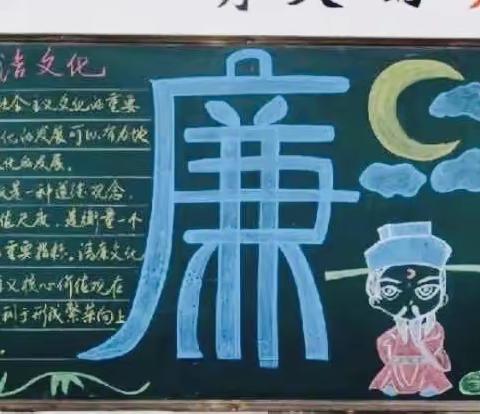 洁文化
社会主义文化的重要
化的发展可以有力地
化的发展。
是一种道德观念,
值尺度,是衡量一个
重要指标。清廉文化
义核心价值观在
利于形成繁荣向上
。
廉